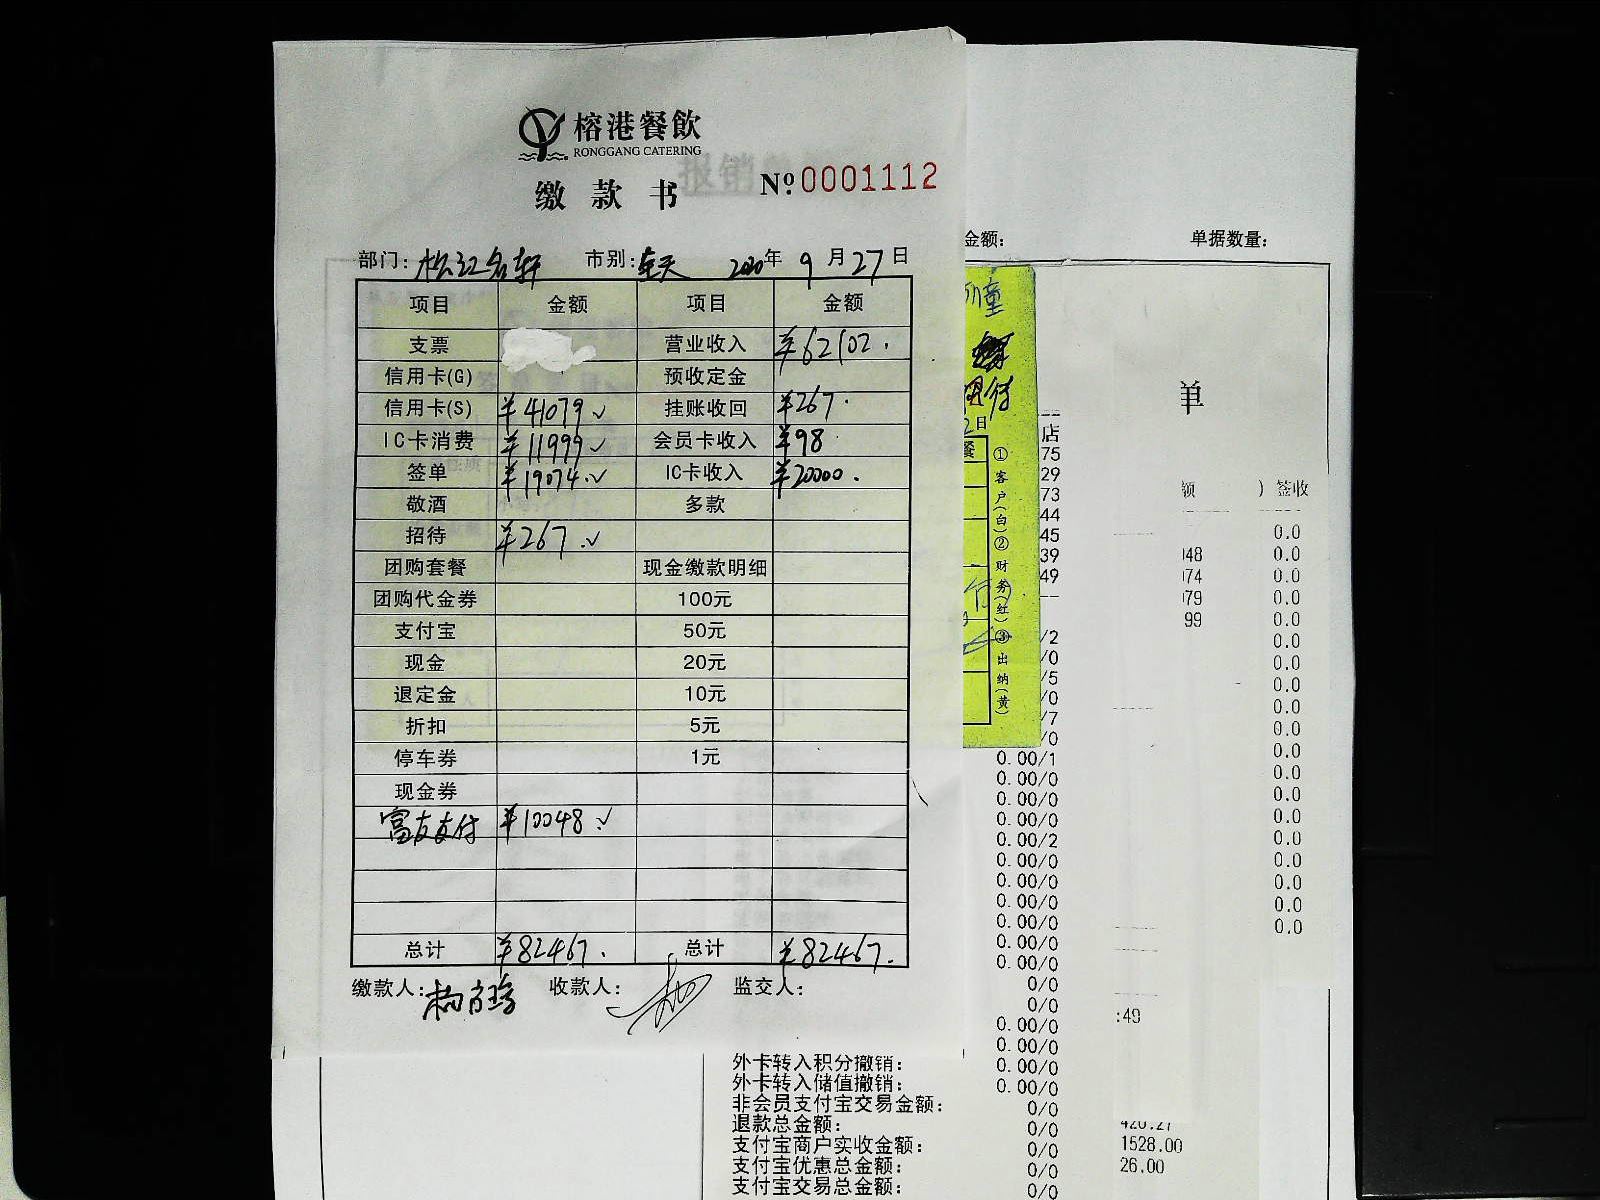 榕港餐飲
RONGGANG CATERING
缴款书 Nº0001112
部门：松江名轩 市别：全天 2020年9月27日
项目 金额 项目 金额
支票 营业收入 ¥62102.
信用卡(G) 预收定金
信用卡(S) ¥41079.✓ 挂账收回 ¥267.
IC卡消费 ¥11999✓ 会员卡收入 ¥98
签单 ¥19074.✓ IC卡收入 ¥20000.
敬酒 多款
招待 ¥267.✓
团购套餐 现金缴款明细
团购代金券 100元
支付宝 50元
现金 20元
退定金 10元
折扣 5元
停车券 1元
现金券
富友支付 ¥10048.✓
总计 ¥82467. 总计 ¥82467.
缴款人： 收款人： 监交人：
金额： 单据数量：
①客户(白)②财务(红)③出纳(黄)
2日
店
75
29
73
44
45
39
49
/2
/0
/5
/0
/7
/0
0.00/1
0.00/0
0.00/0
0.00/0
0.00/2
0.00/0
0.00/0
0.00/0
0.00/0
0.00/0
0.00/0
0/0
0/0
0.00/0
0.00/0
外卡转入积分撤销： 0.00/0
外卡转入储值撤销： 0.00/0
非会员支付宝交易金额： 0/0
退款总金额： 0/0
支付宝商户实收金额： 0/0
支付宝优惠总金额： 0/0
支付宝交易总金额： 0/0
单
额 ) 签收
0.0
048 0.0
074 0.0
079 0.0
99 0.0
0.0
0.0
0.0
0.0
0.0
0.0
0.0
0.0
0.0
0.0
0.0
0.0
0.0
0.0
:49
1528.00
26.00